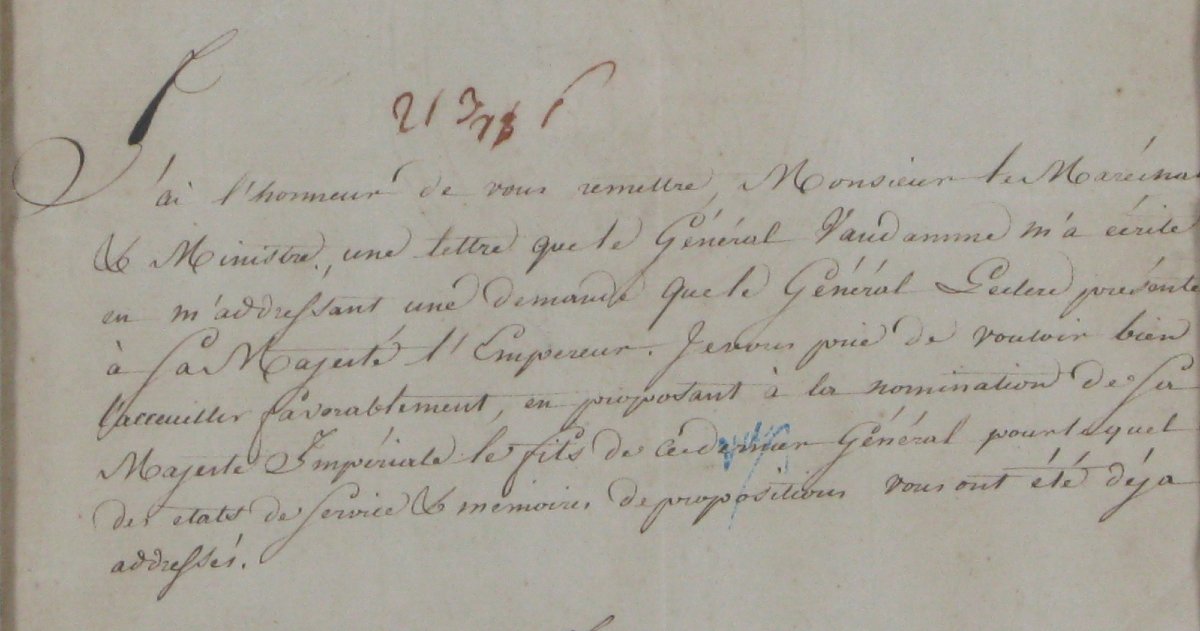 J'ai l'honneur de vous remettre, Monsieur le Maréchal
& Ministre, une lettre que le Général Vandamme m'a écrite
en m'addressant une demande que le Général Leclerc présente
à Sa Majesté l'Empereur. Je vous prie de vouloir bien
l'accueiller favorablement, en proposant à la nomination de Sa
Majeste Impériale le fils de ce dernier Général pour lequel
des etats de service & mémoires de propositions vous ont été déja
addressés.